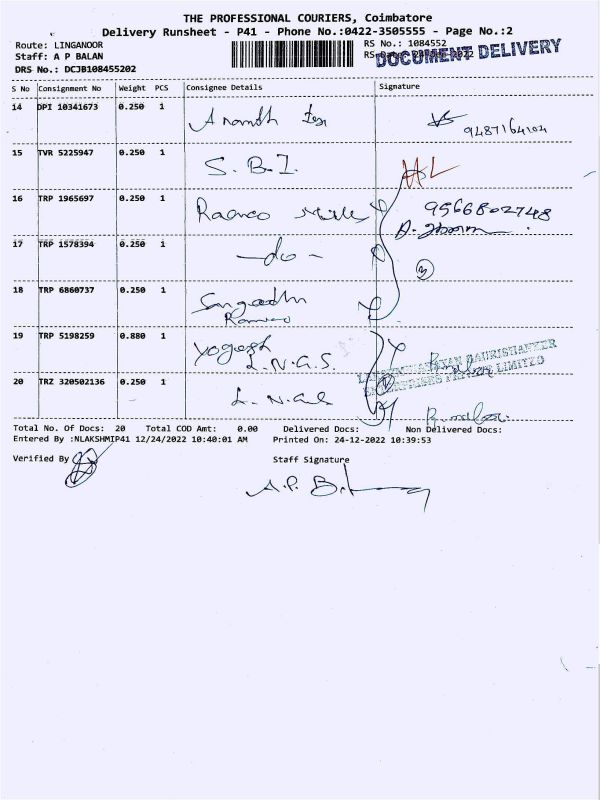 THE PROFESSIONAL COURIERS, Coimbatore
Delivery Runsheet - P41 - Phone No.:0422-3505555 - Page No.:2
Route: LINGANOOR
RS No.: 1084552
Staff: A P BALAN
DOCUMENT DELIVERY
DRS No.: DCJB108455202
S No Consignment No Weight PCS Consignee Details Signature
14 DPI 10341673 0.250 1
15 TVR 5225947 0.250 1 S.B.I.
16 TRP 1965697 0.250 1 9566802748
17 TRP 1578394 0.250 1 -do-
3
18 TRP 6860737 0.250 1
19 TRP 5198259 0.880 1 Yogesh
L.N.G.S.
GAURISHANKER
PRIVATE LIMITED
20 TRZ 320502136 0.250 1
Total No. Of Docs: 20 Total COD Amt: 0.00 Delivered Docs: Non Delivered Docs:
Entered By :NLAKSHMIP41 12/24/2022 10:40:01 AM Printed On: 24-12-2022 10:39:53
Verified By Staff Signature
A.P.